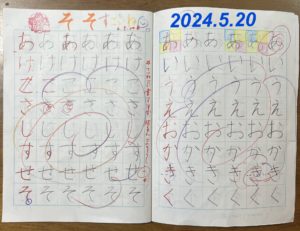 そ そ
2024.5.20
あ あ あ あ あ あ
け け け け け け
こ こ こ こ こ こ
さ さ さ さ さ さ
し し し し し し
す す す す す す
せ せ せ せ せ せ
そ そ そ そ そ そ
あ あ あ あ あ あ
い い い い い い
う う う う う う
え え え え え え
お お お お お お
か か か か か か
き き き き き き
く く く く く く